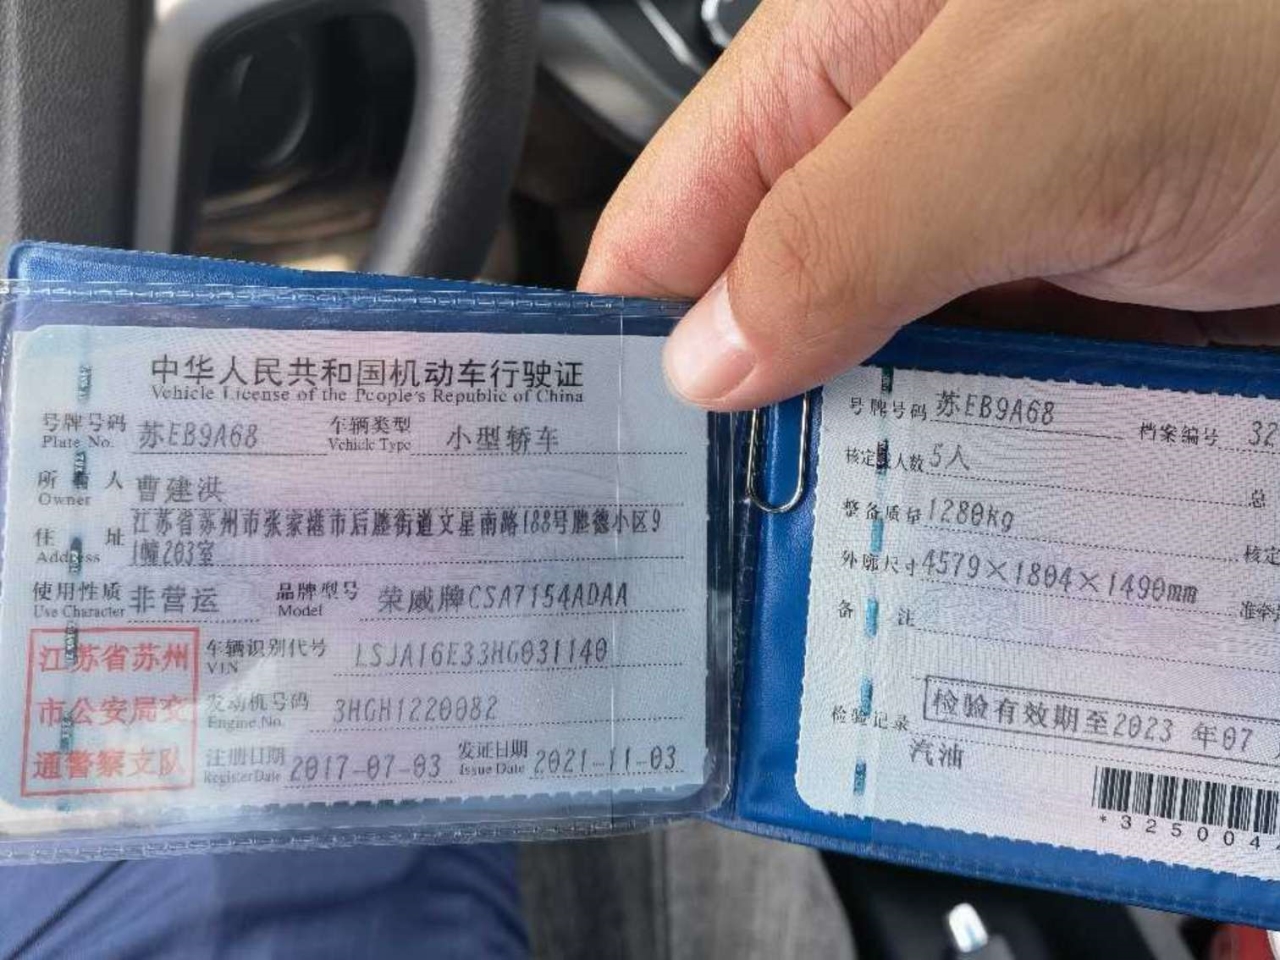 中华人民共和国机动车行驶证
Vehicle License of the People's Republic of China
号牌号码 苏EB9A68 车辆类型 小型轿车
Plate No. Vehicle Type
所 人 曹建洪
Owner
住 址 江苏省苏州市张家港市后塍街道文星南路188号塍德小区9
Address 1幢203室
使用性质 非营运 品牌型号 荣威牌CSA7154ADAA
Use Character Model
江苏省苏州
市公安局交
通警察支队
车辆识别代号 LSJA16E33HG031140
VIN
发动机号码 3HGH1220082
Engine No.
注册日期 2017-07-03 发证日期 2021-11-03
Register Date Issue Date
号牌号码 苏EB9A68 档案编号 32
核定 人数 5人 总
整备质量 1280Kg 核定
外廓尺寸 4579×1804×1490mm 准牵
备 注
检验记录 检验有效期至2023 年07
汽油
*325004